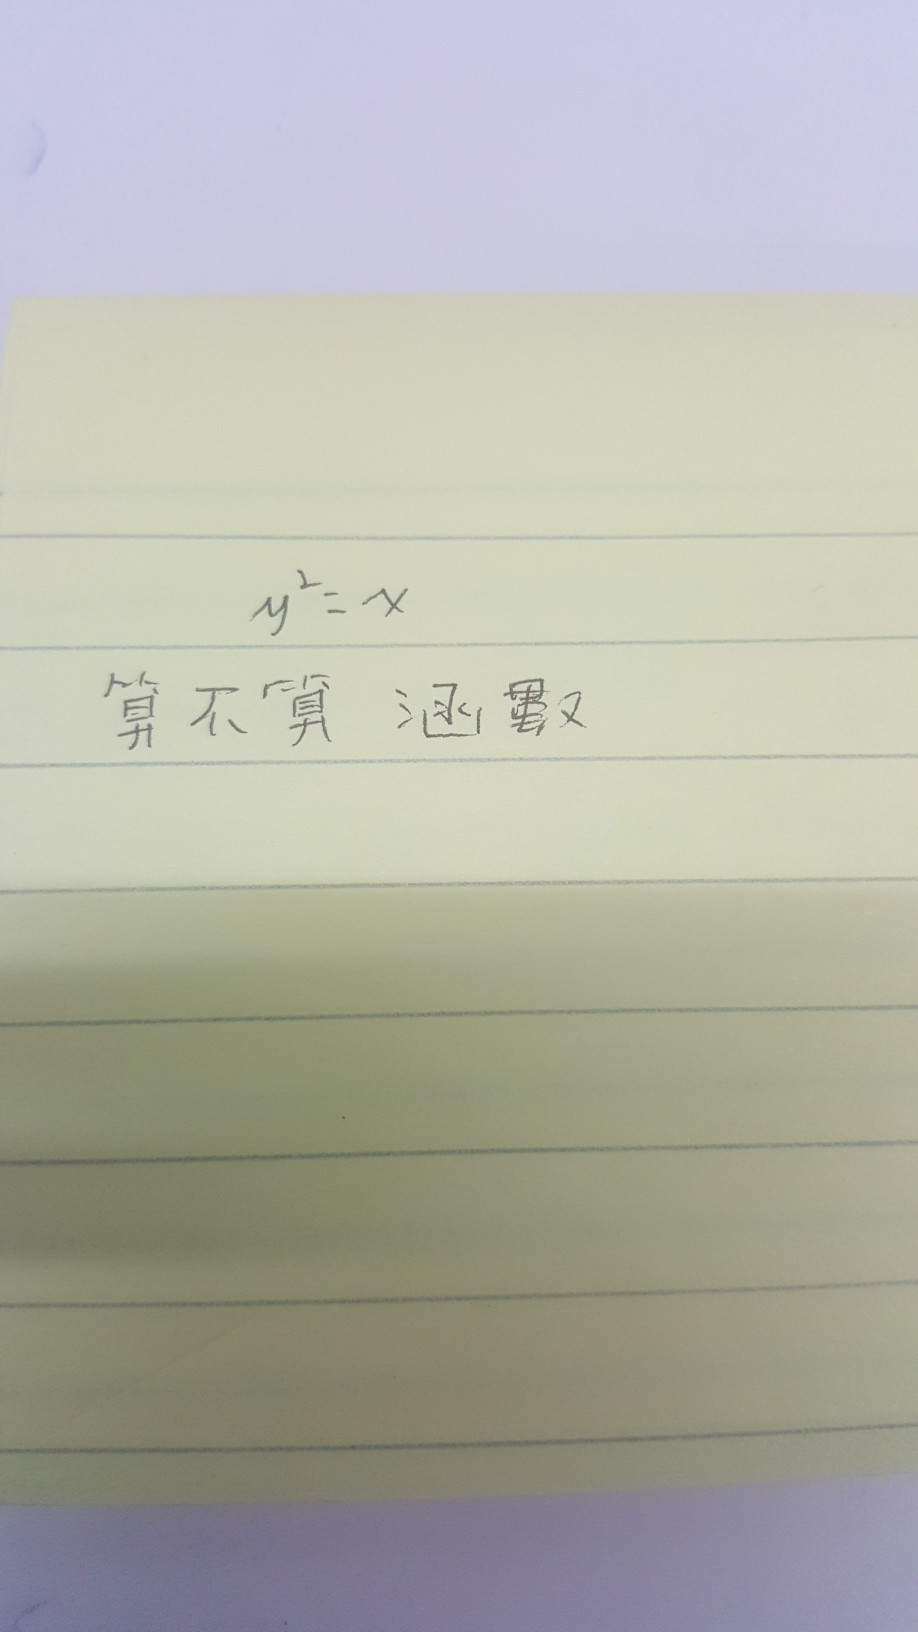 y²=x
算不算 涵數